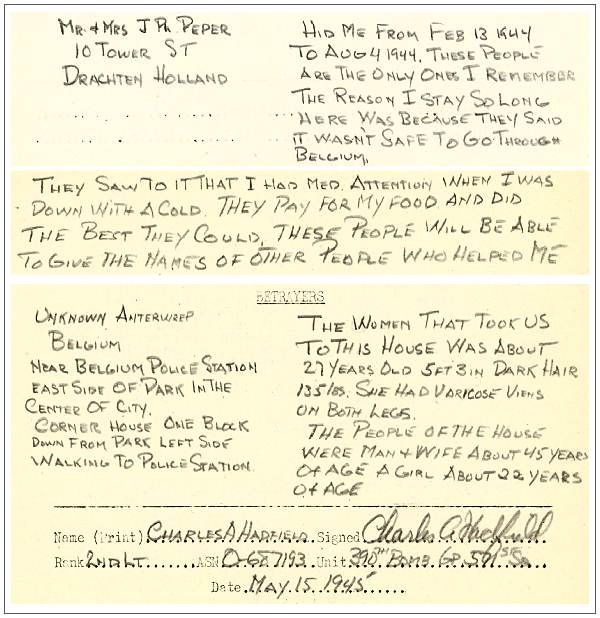 MR. & MRS J PH. PEPER
10 TOWER ST
DRACHTEN HOLLAND
HID ME FROM FEB 13 1944
TO AUG 4 1944. THESE PEOPLE
ARE THE ONLY ONES I REMEMBER
THE REASON I STAY SO LONG
HERE WAS BECAUSE THEY SAID
IT WASN'T SAFE TO GO THROUGH
BELGIUM.
THEY SAW TO IT THAT I HAD MED. ATTENTION WHEN I WAS
DOWN WITH A COLD. THEY PAY FOR MY FOOD AND DID
THE BEST THEY COULD. THESE PEOPLE WILL BE ABLE
TO GIVE THE NAMES OF OTHER PEOPLE WHO HELPED ME
BETRAYERS
UNKNOWN ANTERWREP
BELGIUM
NEAR BELGIUM POLICE STATION
EAST SIDE OF PARK IN THE
CENTER OF CITY.
CORNER HOUSE ONE BLOCK
DOWN FROM PARK LEFT SIDE
WALKING TO POLICE STATION.
THE WOMEN THAT TOOK US
TO THIS HOUSE WAS ABOUT
27 YEARS OLD 5FT 3 IN DARK HAIR
135 lbs. SHE HAD VARICOSE VIENS
ON BOTH LEGS.
THE PEOPLE OF THE HOUSE
WERE MAN & WIFE ABOUT 45 YEARS
OF AGE A GIRL ABOUT 22 YEARS
OF AGE
Name (Print) CHARLES A HADFIELD Signed Charles A. Hadfield
Rank 2ND LT ASN Unit 390TH BOMB. GP. 571ST SQ
Date MAY 15 1945